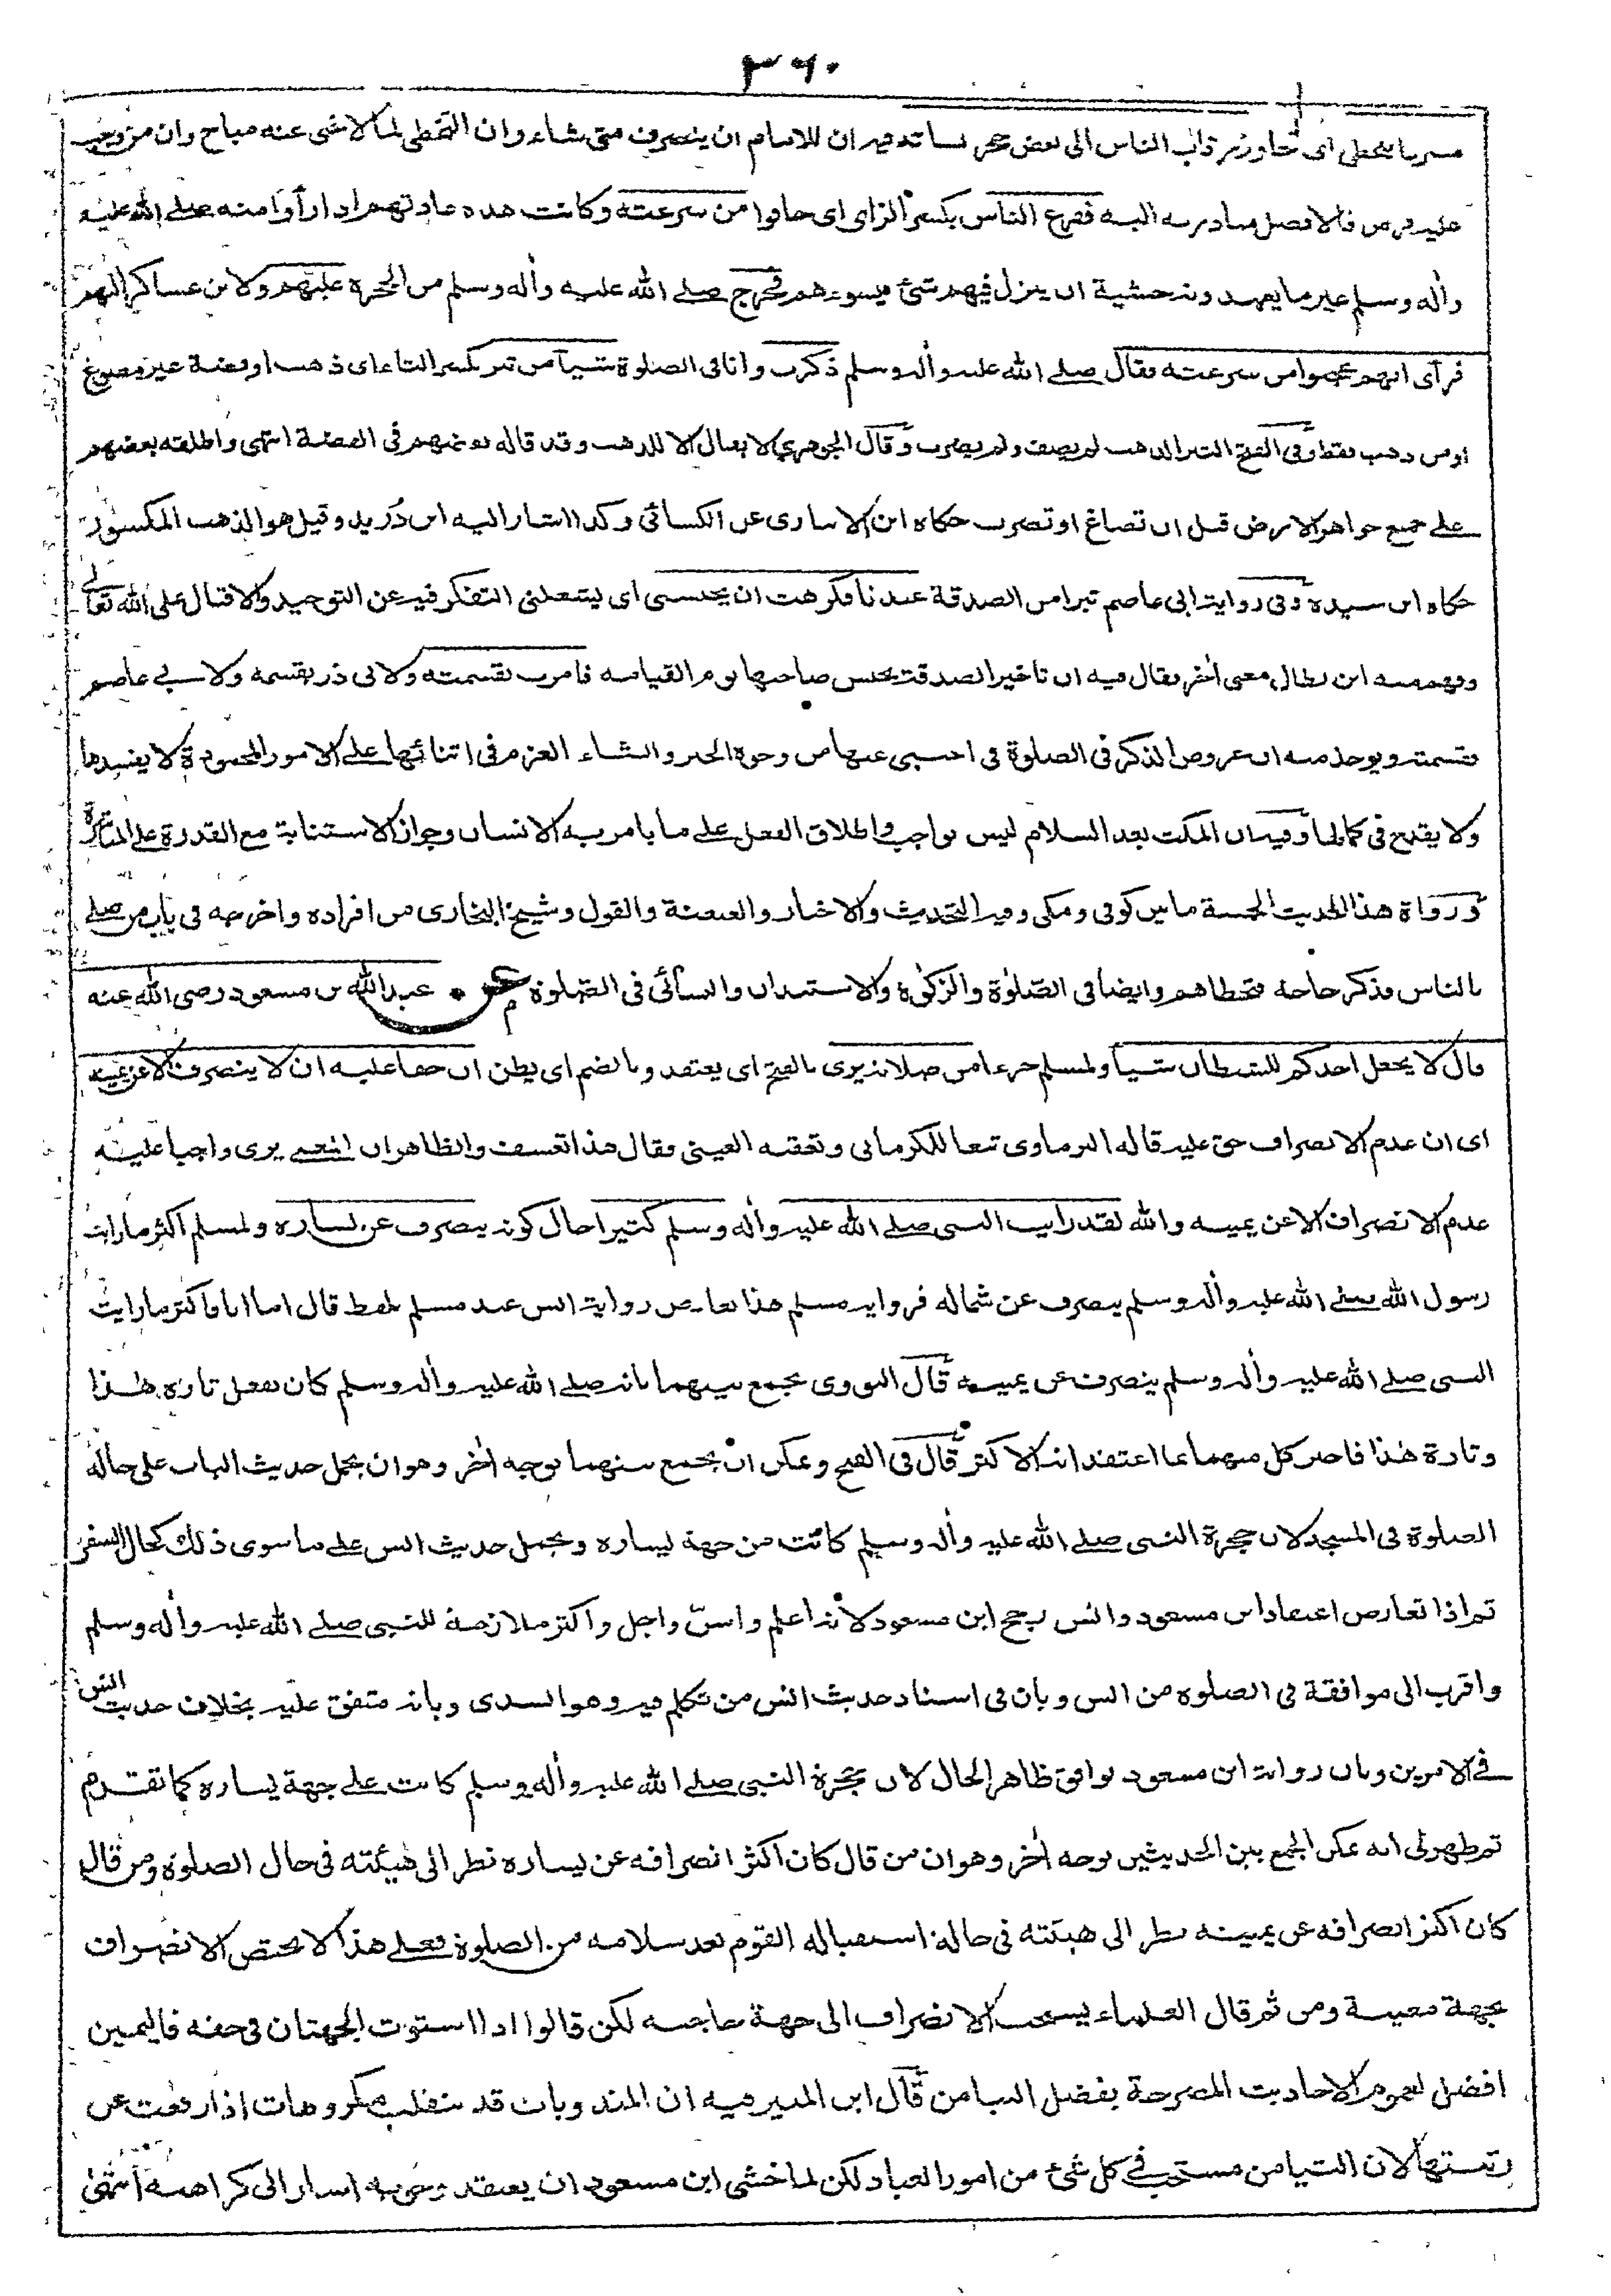 ٣٦٠
مسرعا يتخطى اى تجاوز رقاب الناس الى بعض حجر نسائه فيه ان للامام ان ينصرف متى شاء وان التخطى لما لا غنى عنه مباح وان من وجب
عليه فرض فالافضل مبادرته اليه ففزع الناس بكسر الزاى اى خافوا من سرعته وكانت هذه عادتهم اذا رأوا منه صلے الله عليه
وأله وسلم غير ما يعهدونه خشية ان ينزل فيهم شئ يسوءهم فخرج صلے الله عليه وأله وسلم من الحجرة عليهم ولابن عساكر اليهم
فرأى انهم عجبوا من سرعته فقال صلے الله عليه وأله وسلم ذكرت وانا فى الصلوة شيأ من تبر بكسر التاء اى ذهب او فضة غير مصوغ
او من ذهب فقط وفى الفتح التبر الذهب لم يصف ولم يضرب وقال الجوهرى لا يقال الا للذهب وقد قاله بعضهم فى الفضة انتهى واطلقه بعضهم
علے جميع جواهر الارض قبل ان تصاغ او تضرب حكاه ابن الانبارى عن الكسائى وكذا اشار اليه ابن دُريد وقيل هو الذهب المكسور
حكاه ابن سيده وفى رواية ابى عاصم تبرا من الصدقة عندنا فكرهت ان يحبسنى اى يشغلنى التفكر فيه عن التوحيد والاقبال على الله تعالى
وفهم منه ابن بطال معنى أخر فقال فيه ان تاخير الصدقة يحبس صاحبها يوم القيامه فامرت بقسمته ولابى ذر بقسمه ولابى عاصم
فقسمته ويوخذ منه ان عروض الذكر فى الصلوة فى اجنبى عنها من وجوه الخير وانشاء العزم فى اثنائها علے الامور المحمودة لا يفسدها
ولا يقدح فى كمالها وفيه ان المكث بعد السلام ليس بواجب واطلاق الفعل علے ما يامر به الانسان وجواز الاستنابة مع القدرة على المباشرة
ورواة هذا الحديث الخمسة ما بين كوفى ومكى وفيه التحديث والاخبار والعنعنة والقول وشيخ البخارى من افراده واخرجه فى باب من صلے
بالناس فذكر حاجة فتخطاهم وايضا فى الصّلوٰة والزكوٰة والاستئذان والنسائى فى الصّلوة عن عبد الله بن مسعود رضى الله عنه
قال لا يجعل احدكم للشيطان شيأ ولمسلم جزءا من صلاته يرى بالفتح اى يعتقد وبالضم اى يظن ان حقا عليه ان لا ينصرف الا عن يمينه
اى ان عدم الانصراف حق عليه قاله البرماوى تبعا للكرمانى وتعقبه العينى فقال هذا تعسف والظاهر ان المعنى يرى واجبا عليه
عدم الانصراف الا عن يمينه والله لقد رايت النبى صلے الله عليه وأله وسلم كثيرا حال كونه ينصرف عن يساره ولمسلم اكثر ما رايت
رسول الله صلے الله عليه وأله وسلم ينصرف عن شماله فرواية مسلم هذا تعارض رواية انس عند مسلم بلفظ قال اما انا فاكثر ما رايت
النبى صلے الله عليه وأله وسلم ينصرف عن يمينه قال النووى يجمع بينهما بانه صلے الله عليه وأله وسلم كان يفعل تارة هٰذا
وتارة هٰذا فاخبر كل منهما بما اعتقد انه الاكثر قال فى الفتح ويمكن ان يجمع بينهما بوجه أخر وهو ان يحمل حديث الباب على حالة
الصلوة فى المسجد لان حجرة النبى صلے الله عليه وأله وسلم كانت من جهة يساره ويحمل حديث انس علے ما سوى ذلك كحال السفر
ثم اذا تعارض اعتقاد ابن مسعود وانس رجح ابن مسعود لانه اعلم واسنّ واجل واكثر ملازمة للنبى صلے الله عليه وأله وسلم
واقرب الى موافقة فى الصلوه من انس وبان فى اسناد حديث انس من تكلم فيه وهو السدى وبانه متفق عليه بخلاف حديث انس
فے الامرين وبان رواية ابن مسعود توافق ظاهر الحال لان حجرة النبى صلے الله عليه وأله وسلم كانت علے جهة يساره كما تقدم
ثم ظهر لى انه يمكن الجمع بين الحديثين بوجه أخر وهو ان من قال كان اكثر انصرافه عن يساره نظر الى هيئته فى حال الصلوة ومن قال
كان اكثر انصرافه عن يمينه نظر الى هيئته فى حالة استقباله القوم بعد سلامه من الصلوة فعلے هذا لا يختص الانصراف
بجهة معينة ومن ثم قال العلماء يستحب الانصراف الى جهة حاجته لكن قالوا اذا استوت الجهتان فى حقه فاليمين
افضل لعموم الاحاديث المصرحة بفضل التيامن قال ابن المنير فيه ان المندوبات قد تنقلب مكروهات اذا رفعت عن
رتبتها لان التيامن مستحب فے كل شئ من امور العباد لكن لما خشى ابن مسعود ان يعتقد وجوبه اشار الى كراهته أنتهى